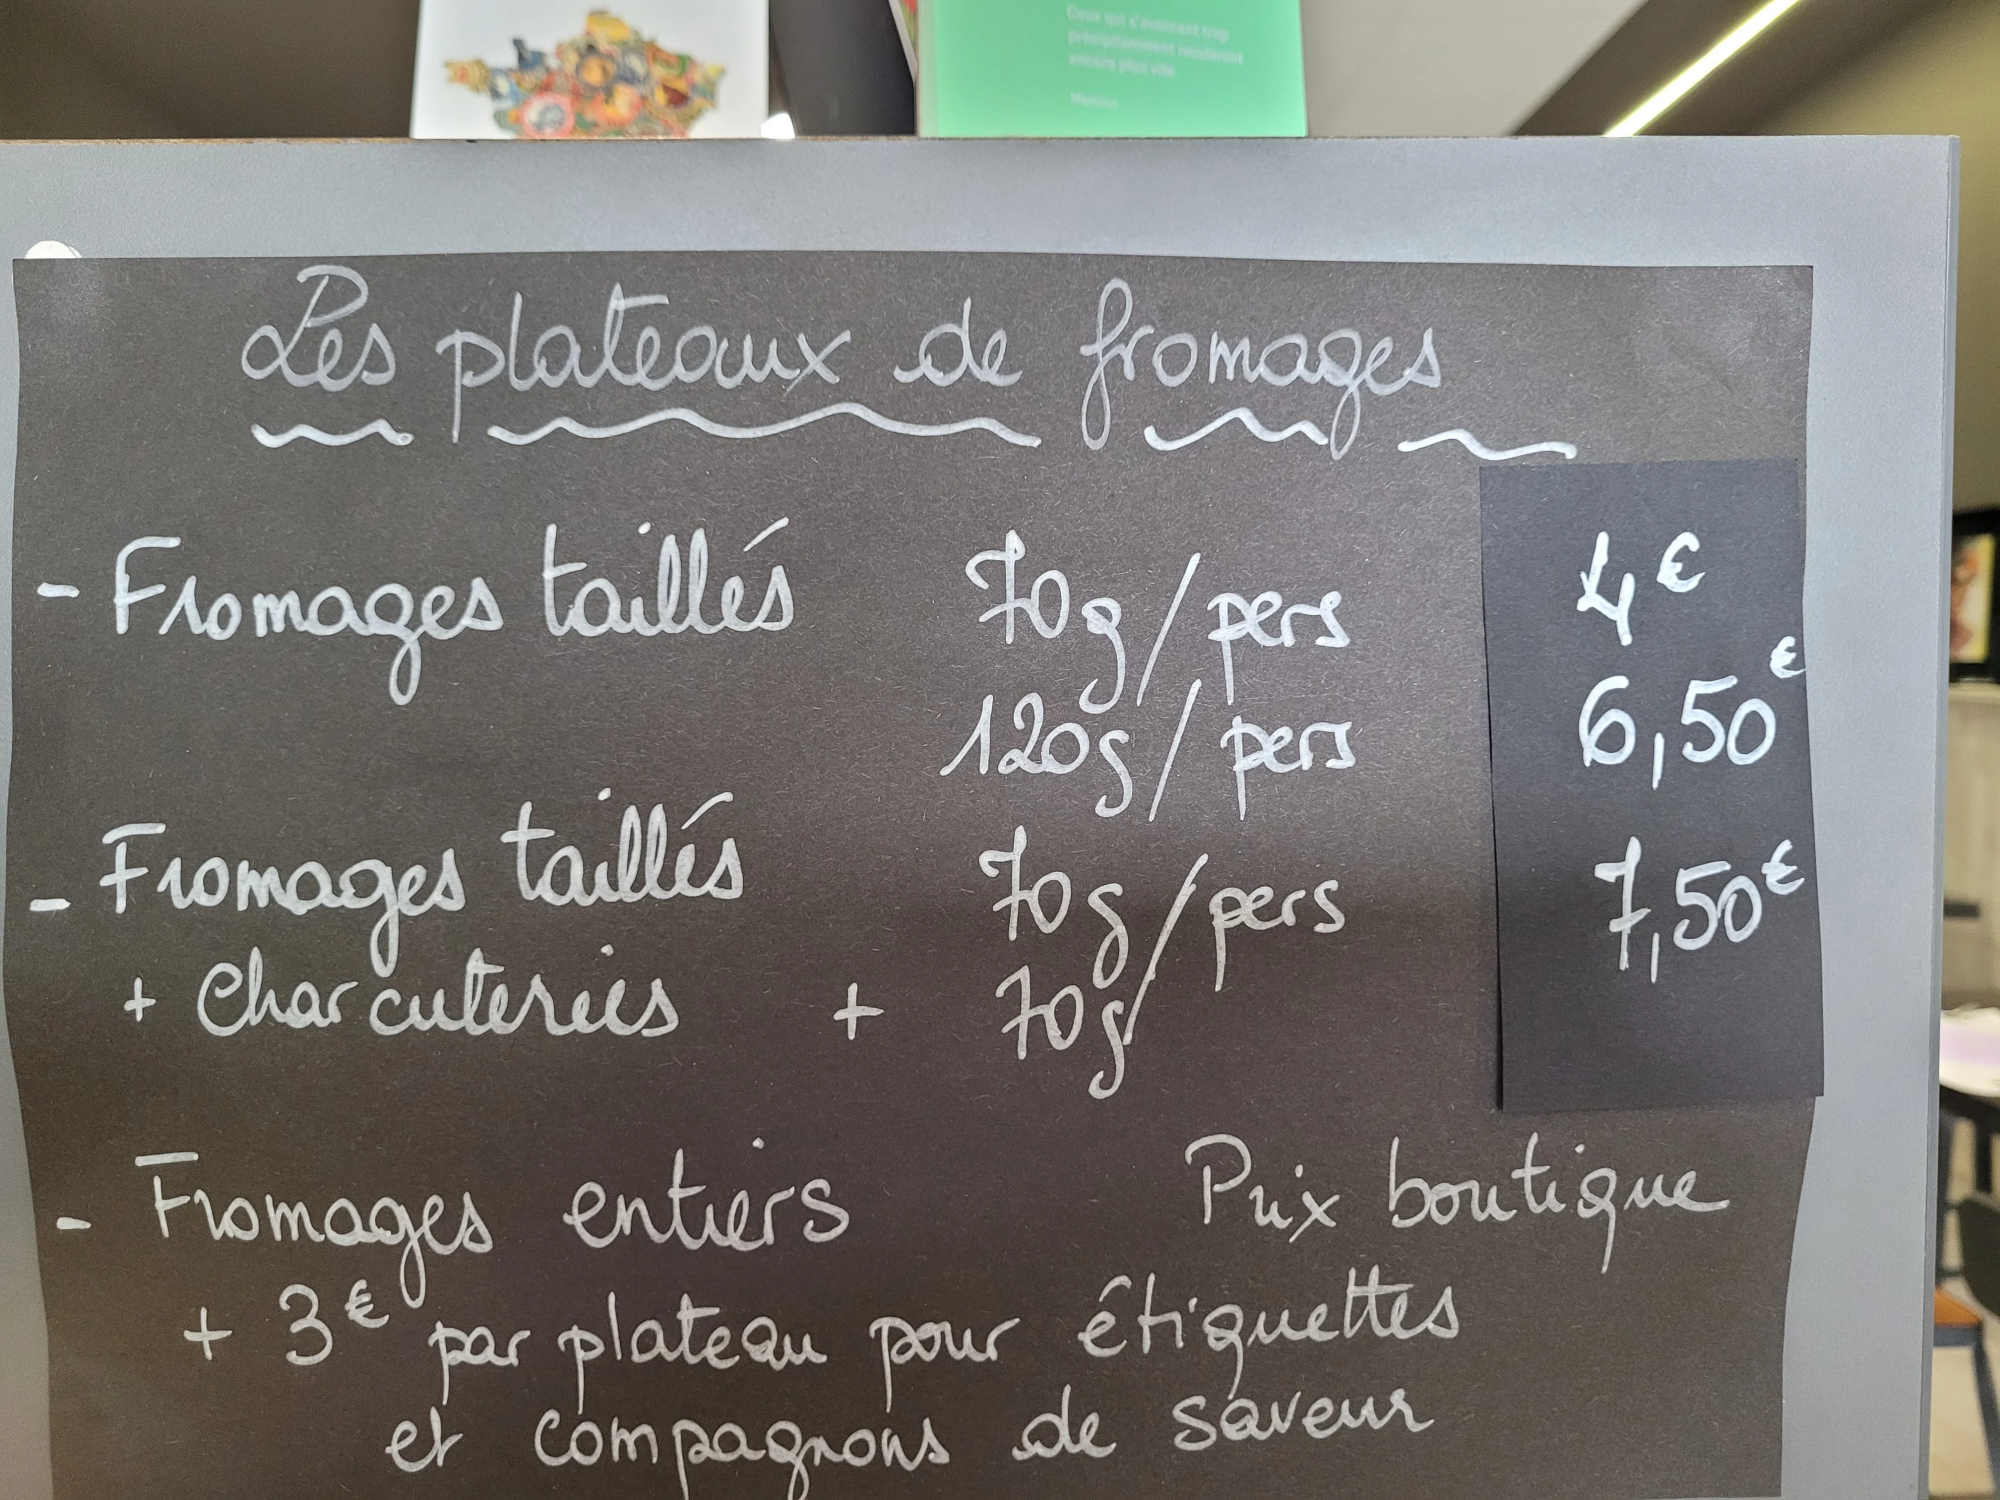 Ceux qui s'avancent trop
précipitamment reculeront
encore plus vite.
Mencius
Les plateaux de fromages
- Fromages taillés 70g/pers 4€
120g/pers 6,50€
- Fromages taillés 70g/pers 7,50€
+ Charcuteries + 70g
- Fromages entiers Prix boutique
+ 3€ par plateau pour étiquettes
et compagnons de saveur